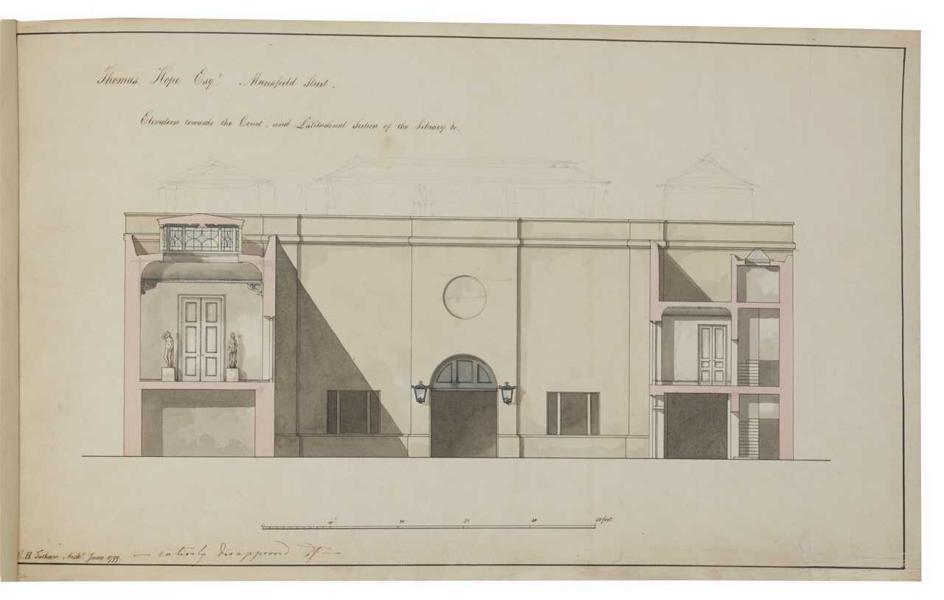 Thomas Hope Esqr. Mansfield Street.
Elevation towards the Court, and Latitudinal Section of the Library &c.
10 20 30 40 50 feet
C. H. Tatham Archt. June 1799. — entirely disapproved of —